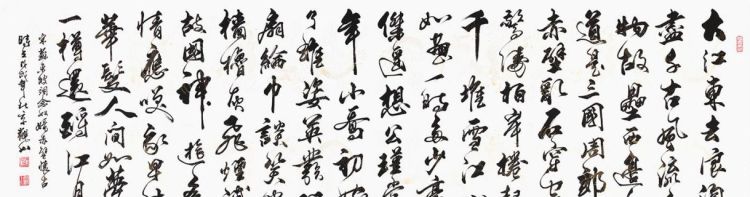 大江東去浪淘
盡千古風流
物故壘西邊人
道是三國周郎
赤壁亂石穿空
驚濤拍岸捲起
千堆雪江
如畫一時多少豪
傑遥想公瑾當
年小喬初
了雄姿英發
扇綸巾談笑
檣櫓灰飛煙滅
故國神遊多
情應笑我早生
華髮人間如夢
一樽還酹江月
宋蘇東坡詞念奴嬌赤壁懷古